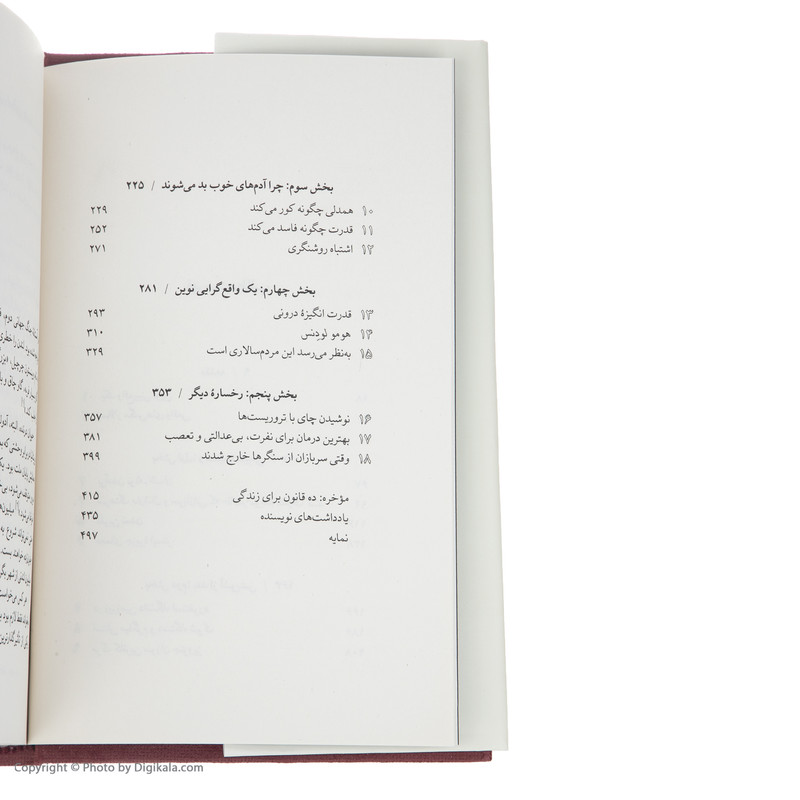 بخش سوم: چرا آدم‌های خوب بد می‌شوند / ۲۲۵
۱۰ همدلی چگونه کور می‌کند ۲۲۹
۱۱ قدرت چگونه فاسد می‌کند ۲۵۲
۱۲ اشتباه روشنگری ۲۷۱
بخش چهارم: یک واقع‌گرایی نوین / ۲۸۱
۱۳ قدرت انگیزهٔ درونی ۲۹۳
۱۴ هومو لودِنس ۳۱۰
۱۵ به‌نظر می‌رسد این مردم‌سالاری است ۳۲۹
بخش پنجم: رخسارهٔ دیگر / ۳۵۳
۱۶ نوشیدن چای با تروریست‌ها ۳۵۷
۱۷ بهترین درمان برای نفرت، بی‌عدالتی و تعصب ۳۸۱
۱۸ وقتی سربازان از سنگرها خارج شدند ۳۹۹
مؤخره: ده قانون برای زندگی ۴۱۵
یادداشت‌های نویسنده ۴۳۵
نمایه ۴۹۷
Copyright © Photo by Digikala.com